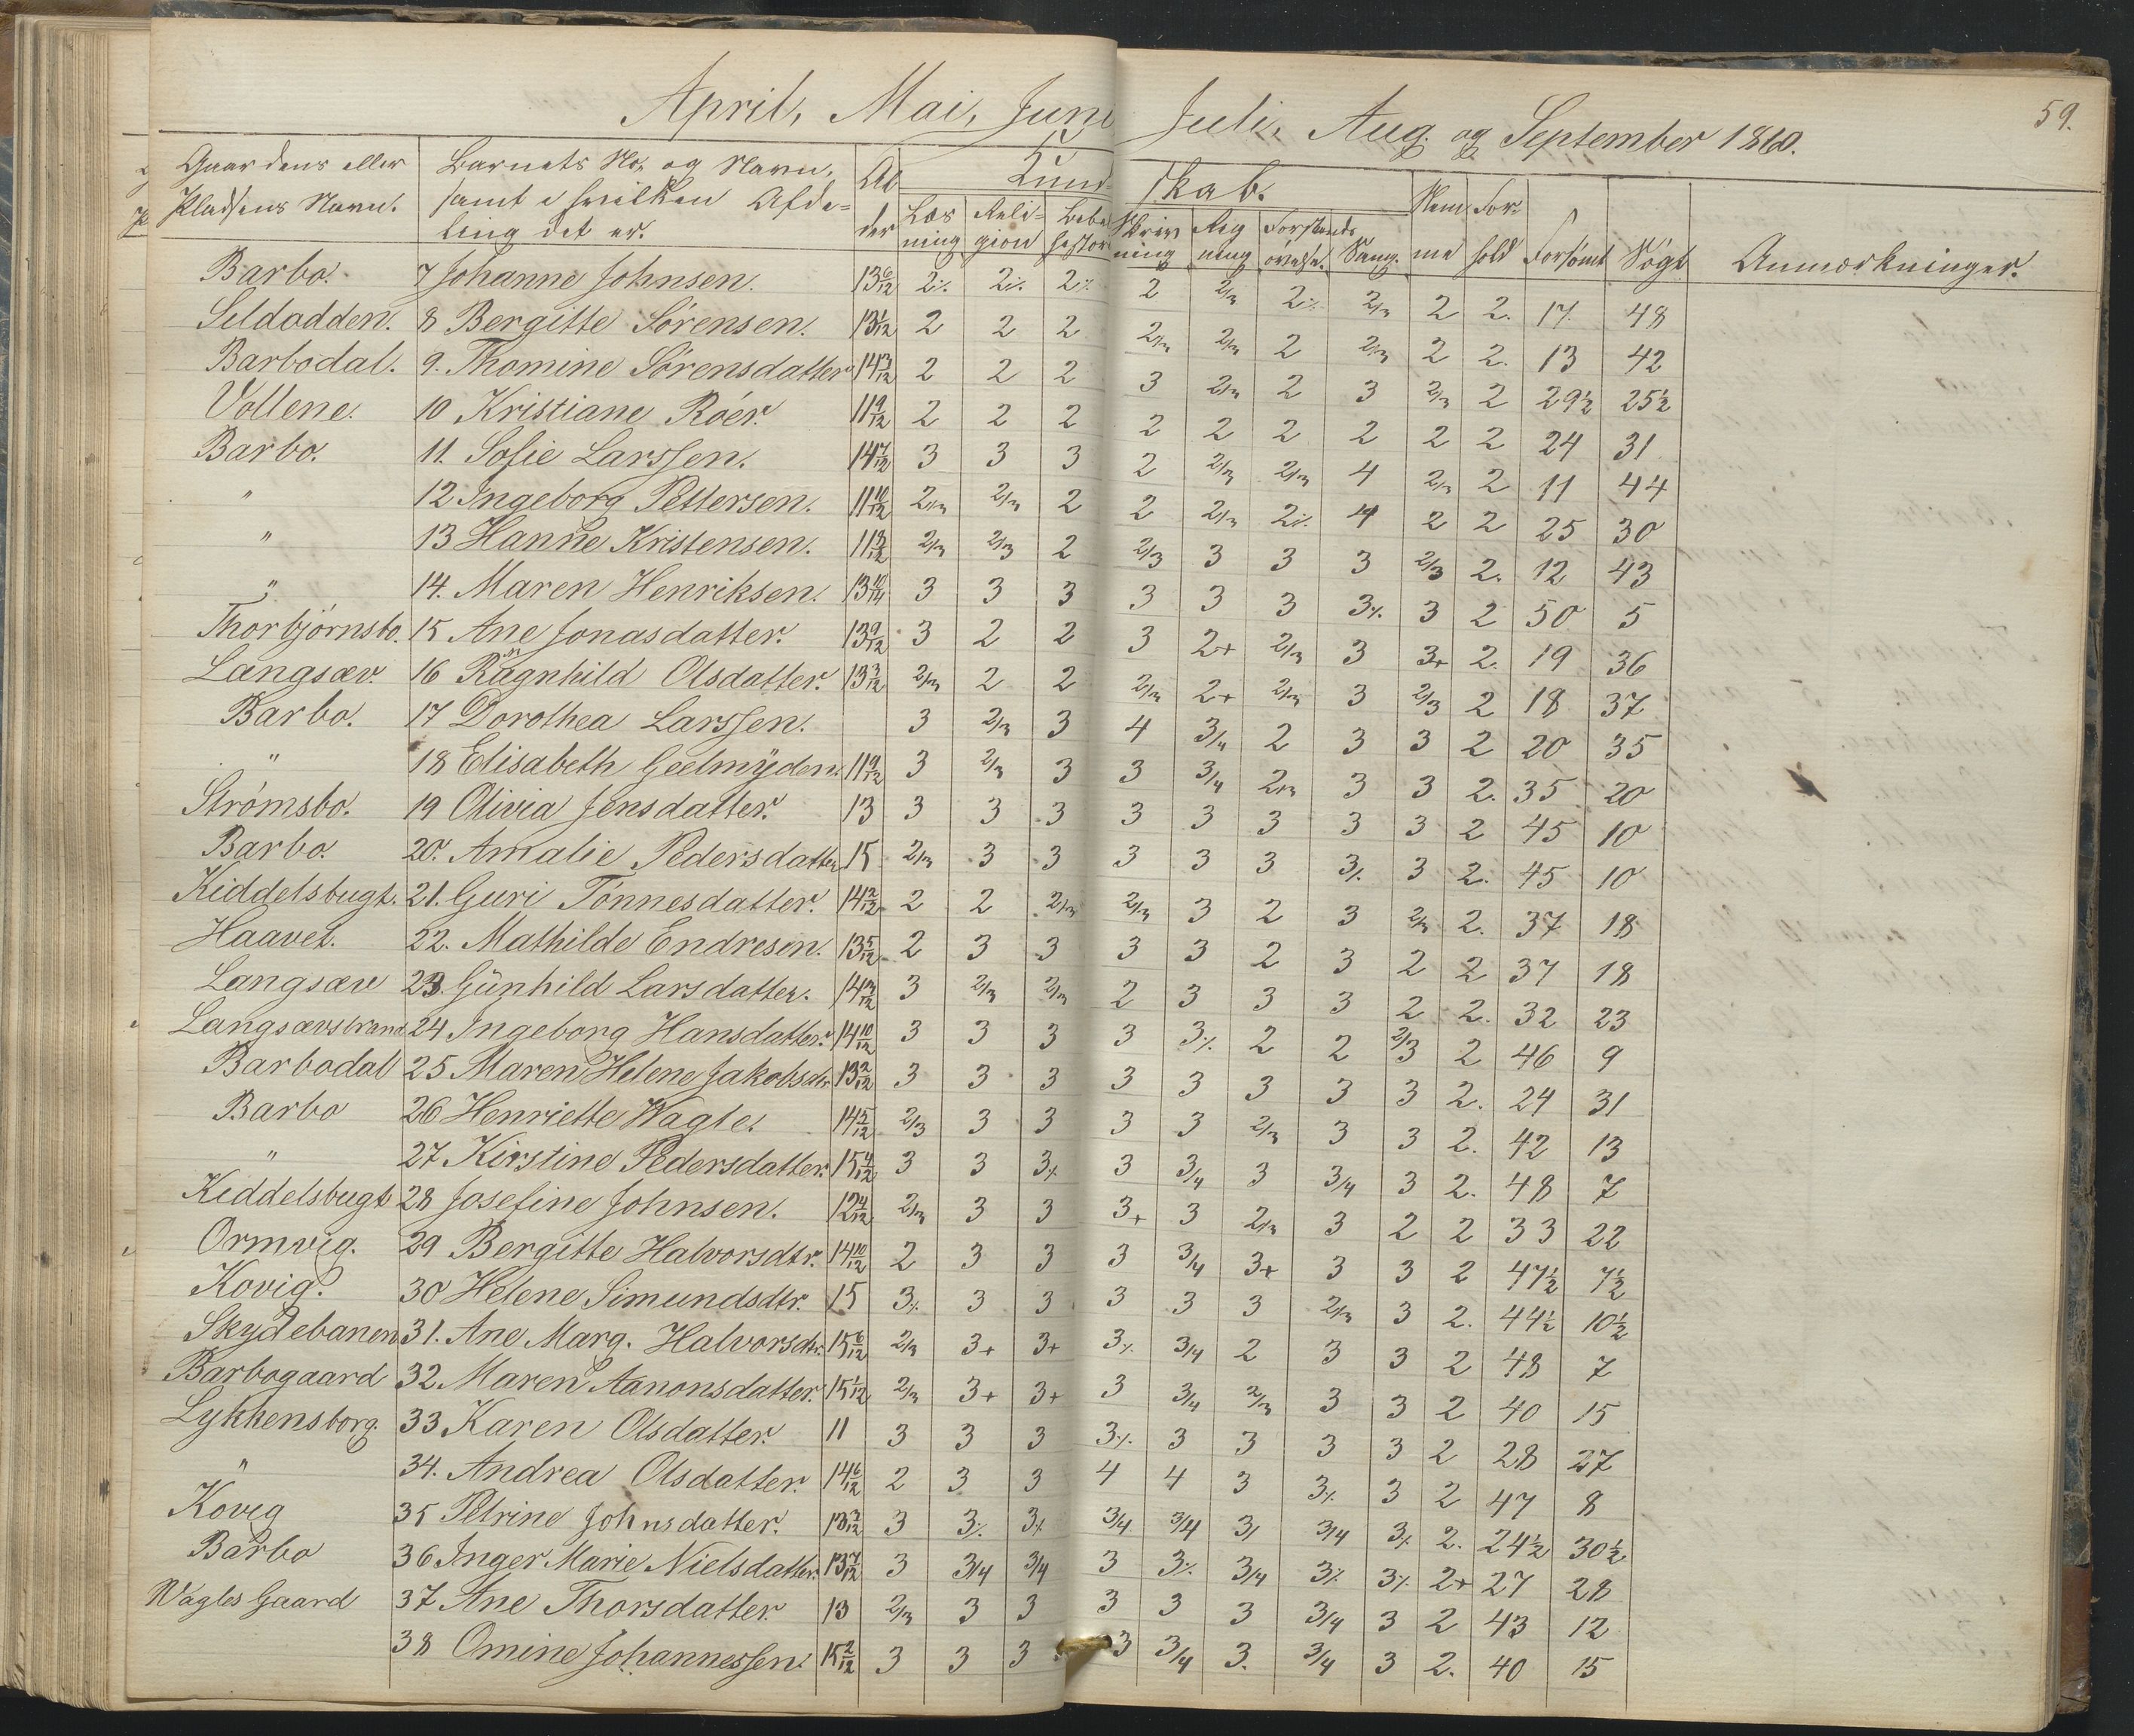 April, Mai, Juni Juli, Aug. og September 1860. 59.
Gaardens eller Pladsens Navn. | Barnets No. og Navn, samt i hvilken Afdeling det er. | Alder | Kundskab. | Nemme | Forhold | Forsömt | Sögt | Anmærkninger.
Læsning | Religion | Skrivning | Regning | Forstandsövelse. | Sang.
Barbo. 7 Johanne Johnsen. 13 6/12 2% 2% 2% 2 2/3 2% 2/3 2 2. 17. 48
Seldodden. 8 Bergitte Sörensen. 13 1/12 2 2 2 2/3 2/3 2 2/3 2 2. 13 42
Barbodal. 9. Thomine Sörensdatter 14 3/12 2 2 2 3 2/3 2 3 2/3 2 29½ 25½
Vollene. 10 Kristiane Röer. 11 9/12 2 2 2 2 2 2 2 2 2 24 31
Barbo. 11. Sofie Larssen. 14 7/12 3 3 3 2 2/3 2/3 4 2/3 2 11 44
" 12 Ingeborg Pettersen. 11 10/12 2/3 2/3 2 2 2/3 2% 4 2 2 25 30
" 13 Hanne Kristensen. 2/3 2/3 2 2/3 3 3 3 2/3 2. 12 43
" 14. Maren Henriksen. 3 3 3 3 3 3 3% 3 2 50 5
Thorbjörnsbo. 15 Ane Jonasdatter. 13 9/12 3 2 2 3 2+ 2/3 3 3+ 2. 19 36
Langsæv. 16 Ragnhild Olsdatter. 13 3/12 2/3 2 2 2/3 2+ 2/3 3 2/3 2 18 37
Barbo. 17 Dorothea Larssen. 3 2/3 3 4 3/4 2 3 3 2 20 35
" 18 Elisabeth Geelmÿden. 11 9/12 3 2/3 3 3 3/4 2/3 3 3 2. 35 20
Strömsbo. 19 Olivia Jensdatter. 13 3 3 3 3 3 3 3 3 2 45 10
Barbo. 20. Amalie Pedersdatter 15 2/3 3 3 3 3 3 3% 3 2. 45 10
Kiddelsbugt. 21. Guri Tönnesdatter. 14 2/12 2 2 2/3 2/3 3 2 3 2/3 2. 37 18
Haavet. 22. Mathilde Endresen. 13 5/12 2 3 3 3 3 2 3 2 2 37 18
Langsæv 23. Günhild Larsdatter. 14 3/12 3 2/3 2/3 2 3 3 3 2 2. 32 23
Langsævstrand 24 Ingeborg Hansdatter. 14 10/12 3 3 3 3 3% 2 2 2/3 2 46 9
Barbodal 25 Maren Helene Jakobsdtr 13 2/12 3 3 3 3 3 3 3 3 2. 24 31
Barbo 26 Henriette Wagle. 14 5/12 2/3 3 3 3 3 2/3 3 3 2. 42 13
" 27 Kirstine Pedersdatter. 15 4/12 3 3 3% 3 3/4 3 3/4 3 2. 48 7
Kiddelsbugt 28 Josefine Johnsen. 12 4/12 2/3 3 3 3+ 3 2/3 3 2 2 33 22
Ormvig. 29 Bergitte Halvorsdtr. 14 10/12 2 3 3 3 3/4 3+ 3 3 2 47½ 7½
Kovig. 30 Helene Simundsdtr. 15 3% 3 3 3 3 3 2/3 3 2. 44½ 10½
Skydebanen 31. Ane Marg. Halvorsdtr. 15 6/12 2/3 3+ 3+ 3% 3/4 2 3 3 2 48 7
Barbogaard 32. Maren Aanonsdatter. 15 1/12 2/3 3+ 3+ 3 3/4 2/3 3 3 2 40 15
Lykkensborg. 33 Karen Olsdatter. 11 3 3 3 3% 3 3 3 3 2 28 27
" 34. Andrea Olsdatter. 14 6/12 2 3 3 4 4 3 3% 3 2 47 8
Kovig 35 Petrine Johnsdatter. 3 3% 3% 3/4 3/4 3/ 3/4 3% 2. 24½ 30½
Barbo 36 Inger Marie Nielsdatter. 13 7/12 3 3/4 3/4 3 3% 3/4 3% 3% 2+ 27 28
Wagles Gaard 37 Ane Thorsdatter. 13 2/3 3 3 3 3 3 3/4 3 2 43 12
38 Omine Johannessen. 15 2/12 3 3 3 3 3/4 3. 3/4 3 2. 40 15